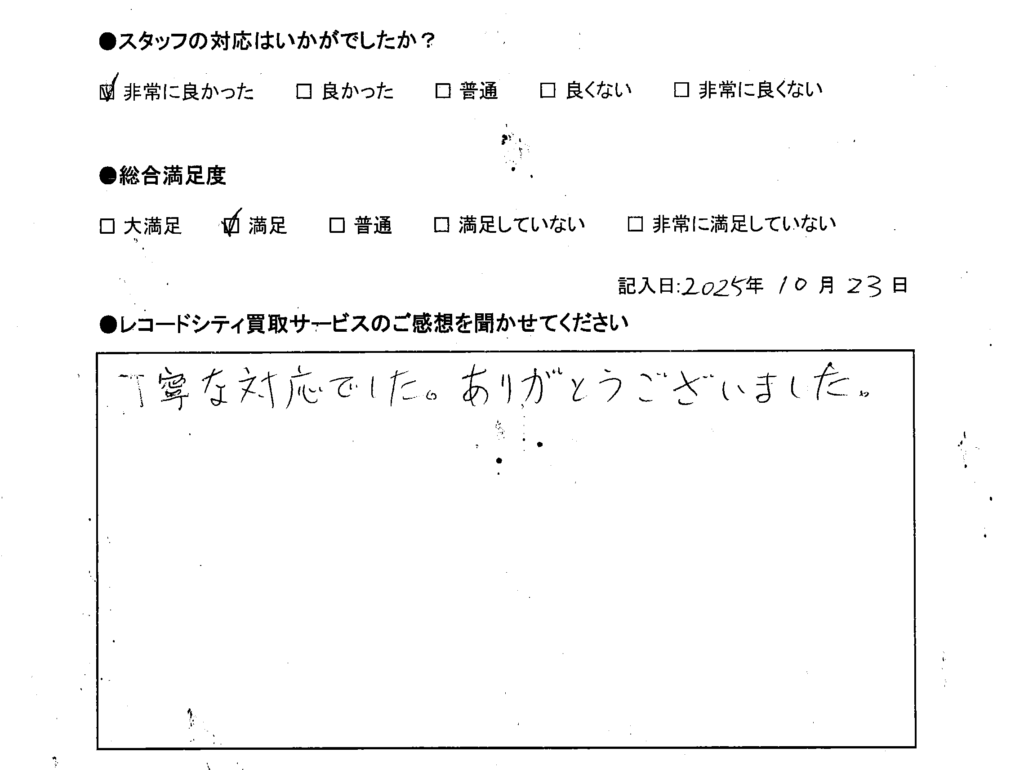 ●スタッフの対応はいかがでしたか？
☑ 非常に良かった □ 良かった □ 普通 □ 良くない □ 非常に良くない
●総合満足度
□ 大満足 ☑ 満足 □ 普通 □ 満足していない □ 非常に満足していない
記入日:2025年 10月 23日
●レコードシティ買取サービスのご感想を聞かせてください
丁寧な対応でした。ありがとうございました。